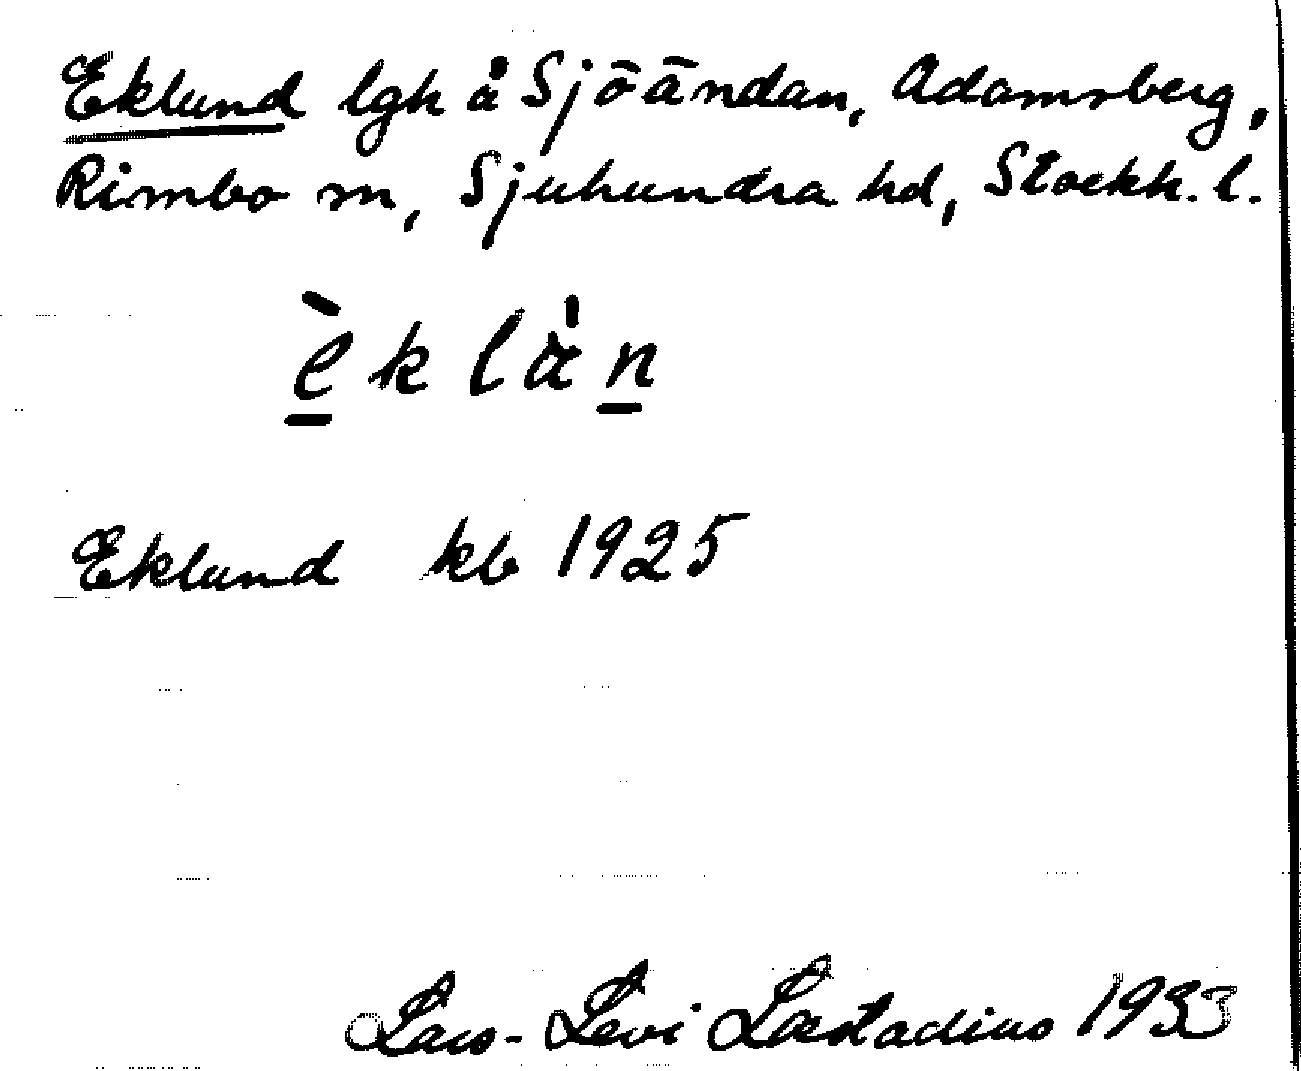 Eklund lgh å Sjöändan, Adamsberg,
Rimbo sn, Sjuhundra hd, Stockh. l.
èklà̍n
Eklund kb 1925
Lars-Levi Læstadius 1933